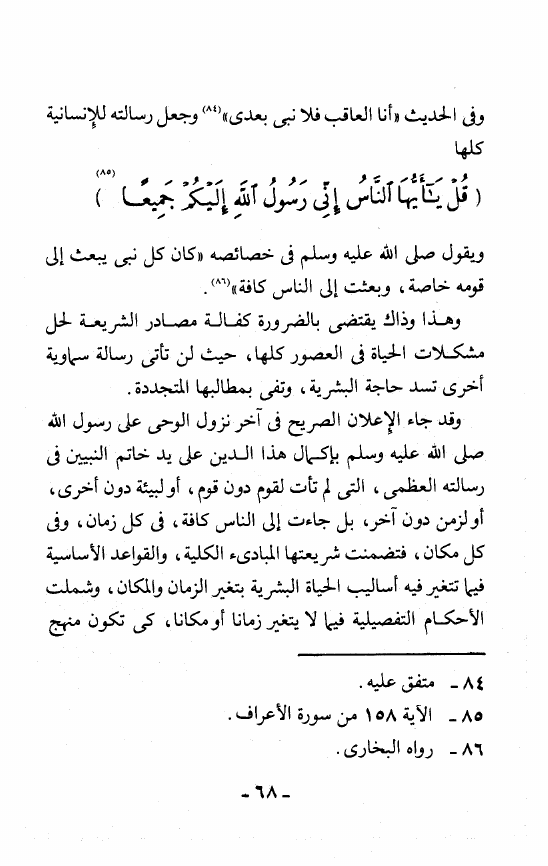 وفى الحديث «أنا العاقب فلا نبى بعدى»(٨٤) وجعل رسالته للإنسانية
كلها
( قُلْ يَـٰٓأَيُّهَا ٱلنَّاسُ إِنِّى رَسُولُ ٱللَّهِ إِلَيْكُمْ جَمِيعًا (٨٥) )
ويقول صلى الله عليه وسلم فى خصائصه «كان كل نبى يبعث إلى
قومه خاصة، وبعثت إلى الناس كافة»(٨٦).
وهـذا وذاك يقتضى بالضرورة كفـالـة مصـادر الشريعـة لحل
مشكـلات الحياة فى العصور كلها، حيث لن تأتى رسالة سماوية
أخرى تسد حاجة البشرية، وتفى بمطالبها المتجددة.
وقد جاء الإعلان الصريح فى آخر نزول الوحى على رسول الله
صلى الله عليه وسلم بإكـمال هذا الـدين على يد خاتم النبيين فى
رسالته العظمى، التى لم تأت لقوم دون قوم، أو لبيئة دون أخرى،
أو لزمن دون آخر، بل جاءت إلى الناس كافة، فى كل زمان، وفى
كل مكان، فتضمنت شريعتها المبادىء الكلية، والقواعد الأساسية
فيما تتغير فيه أساليب الحياة البشرية بتغير الزمان والمكان، وشملت
الأحكـام التفصيلية فيما لا يتغير زمانا أو مكانا، كى تكون منهج
٨٤ ـ متفق عليه.
٨٥ ـ الآية ١٥٨ من سورة الأعراف.
٨٦ ـ رواه البخارى.
ـ ٦٨ ـ